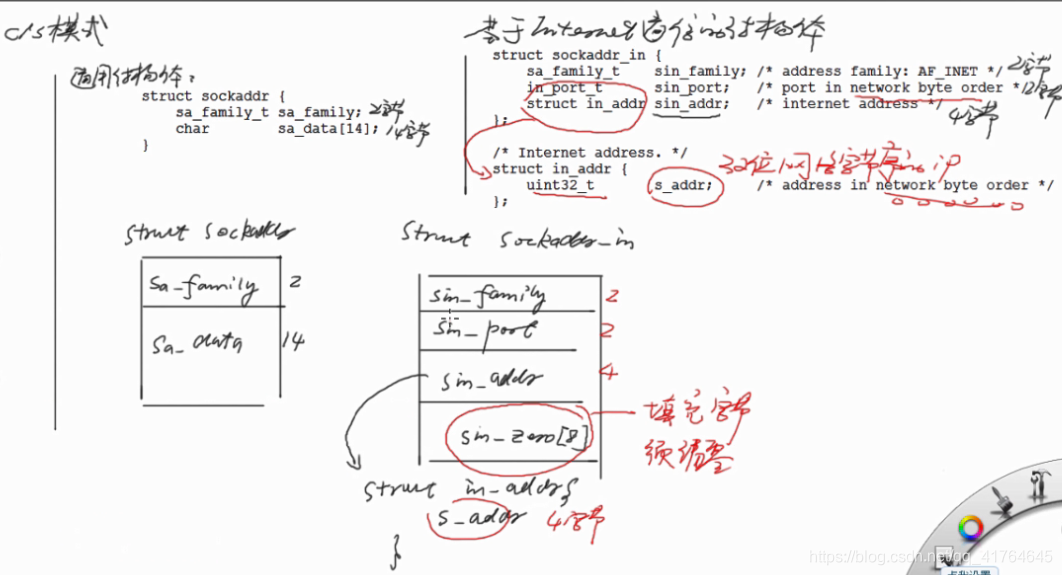 C/S模式
通用结构体：
struct sockaddr {
sa_family_t sa_family; 2字节
char sa_data[14]; 14字节
}
基于Internet通信的结构体
struct sockaddr_in {
sa_family_t sin_family; /* address family: AF_INET */ 2字节
in_port_t sin_port; /* port in network byte order */ 2字节
struct in_addr sin_addr; /* internet address */ 4字节
};
/* Internet address. */
struct in_addr {
32位网络字节序的IP
uint32_t s_addr; /* address in network byte order */
};
struct sockaddr
sa_family 2
sa_data 14
struct sockaddr_in
sin_family 2
sin_port 2
sin_addr 4
sin_zero[8]
填充字节
须清零
struct in_addr{
s_addr 4字节
}
https://blog.csdn.net/qq_41764645